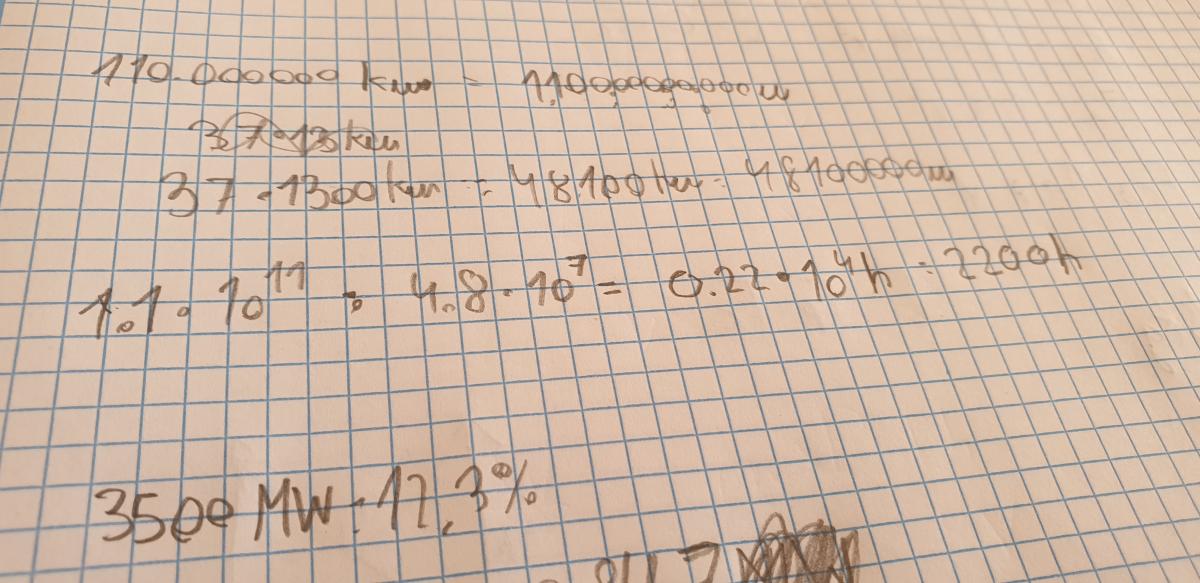 110.000000 km = 110000000000m
37.13km
37.1300km = 48100km = 48100000m
1.1 • 10¹¹ : 4.8 • 10⁷ = 0.22 • 10⁴h = 2200h
3500 MW = 17,3%